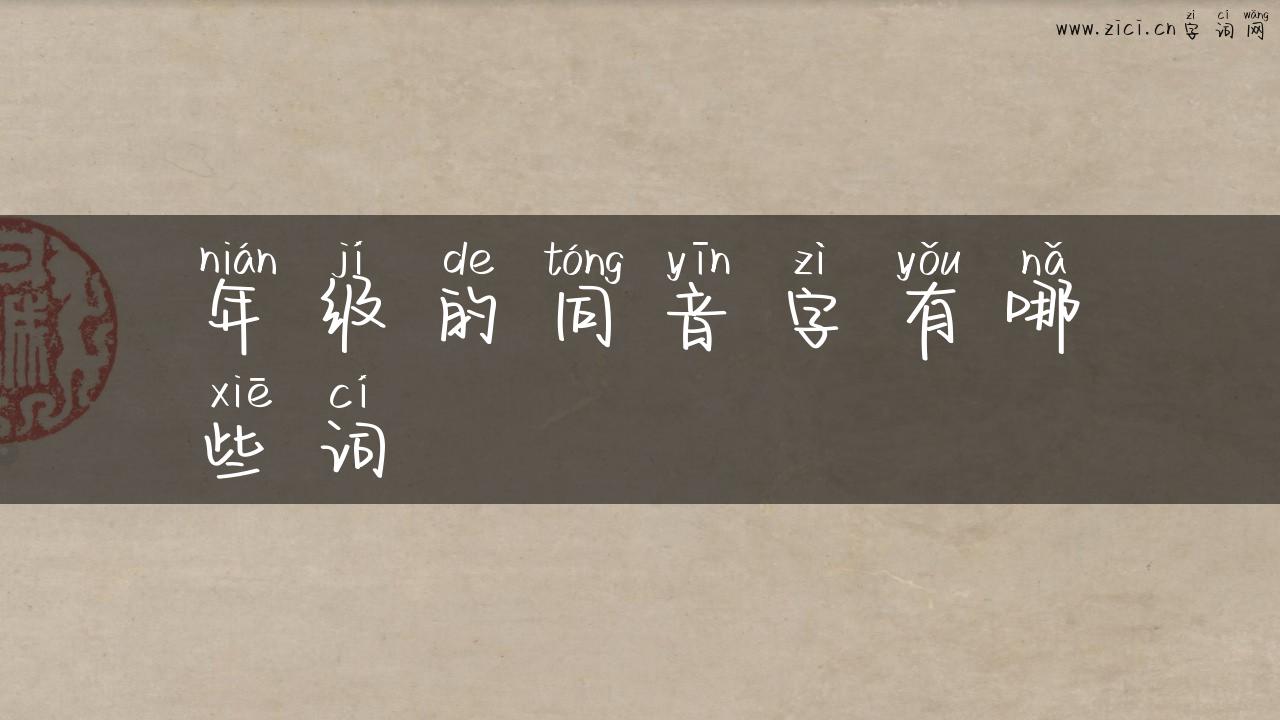 zì cí wǎng
www.zici.cn字词网
nián jí de tóng yīn zì yǒu nǎ
年级的同音字有哪
xiē cí
些词